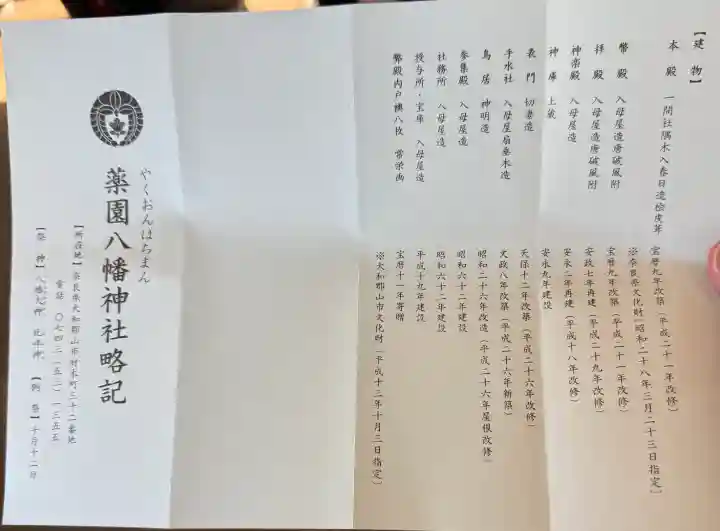 【建物】
本殿 一間社隅木入春日造桧皮葺 宝暦九年改築(平成二十一年改修)
※奈良県文化財(昭和二十八年三月二十三日指定)
幣殿 入母屋造唐破風附 宝暦九年改築(平成二十一年改修)
拝殿 入母屋造唐破風附 安政七年再建(平成二十九年改修)
神楽殿 入母屋造 安永二年再建(平成十八年改修)
神庫 土蔵 安永九年建設
表門 切妻造 天保十二年改築(平成二十六年改修)
手水社 入母屋扇垂木造 文政八年改築(平成二十六年新築)
鳥居 神明造 昭和二十六年改造(平成二十六年屋根改修)
参集殿 入母屋造 昭和六十二年建設
社務所 入母屋造 昭和六十二年建設
授与所・宝庫 入母屋造 平成十九年建設
弊殿内戸襖八枚 常栄画 宝暦十一年寄贈
※大和郡山市文化財(平成十三年十月三日指定)
やくおんはちまん
薬園八幡神社略記
【所在地】奈良県大和郡山市材木町三十二番地
電話 〇七四三―五三―一三五五
【祭神】八幡大神 【例祭】十月十二日